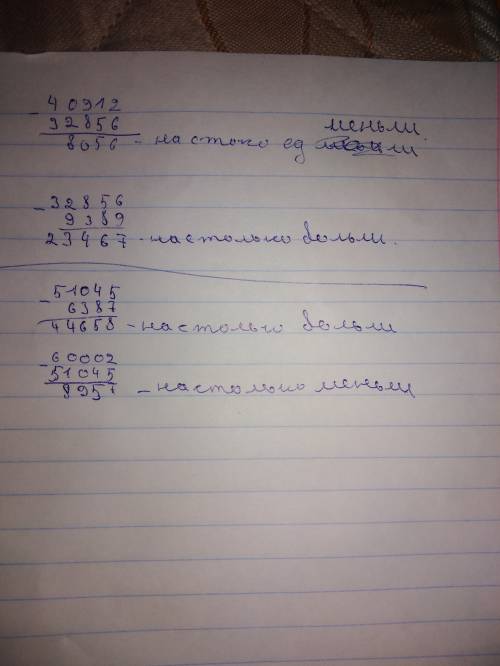 - 40912
32856
8056 - на стоко ед меньли.
- 32856
9389
23467 - настолько больли.
- 51045
6387
44658 - настолько больли
- 60002
51045
8957 - настолько меньли